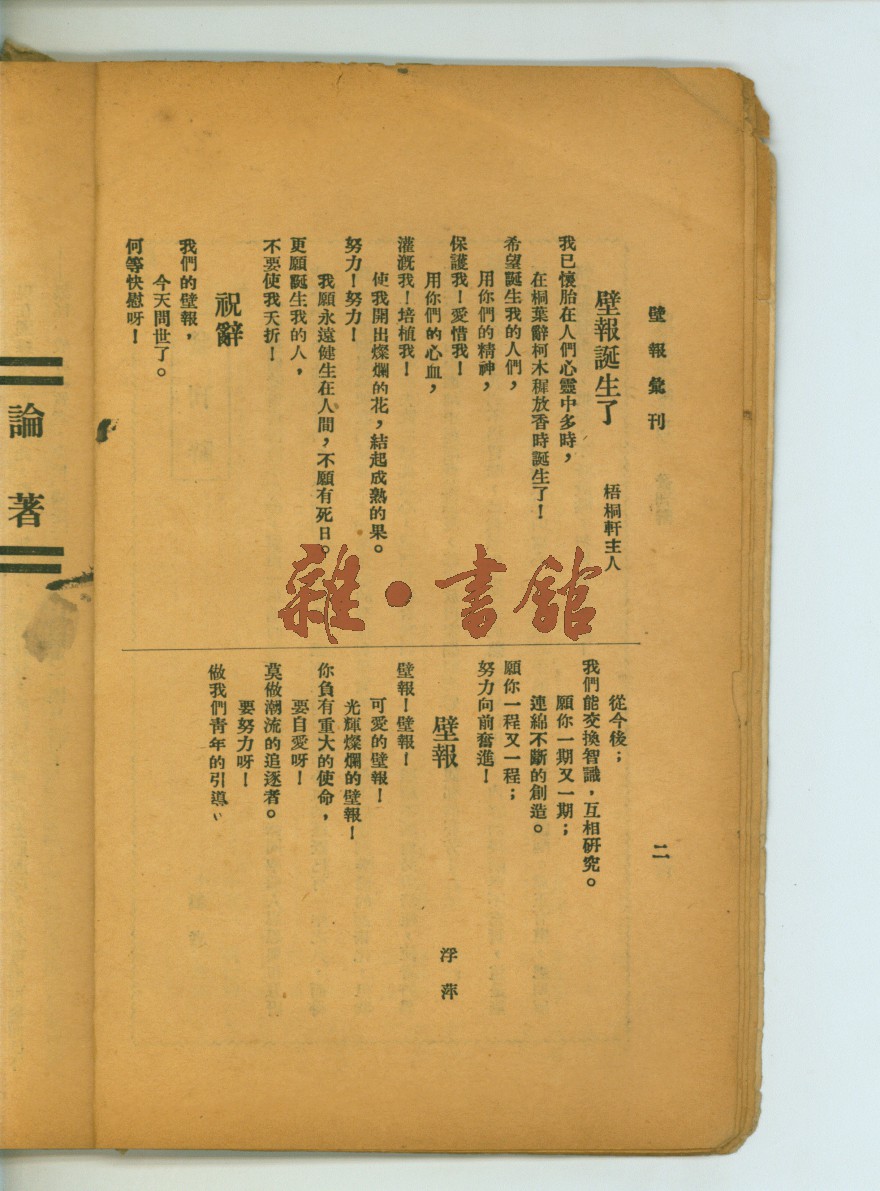 壁報彙刊
二
壁報誕生了
梧桐軒主人
我已懷胎在人們心靈中多時，
在桐葉辭柯木穉放香時誕生了！
希望誕生我的人們，
用你們的精神，
保護我！愛惜我！
用你們的心血，
灌溉我！培植我！
使我開出燦爛的花，結起成熟的果。
努力！努力！
我願永遠健生在人間，不願有死日。
更願誕生我的人，
不要使我夭折！
祝辭
我們的壁報，
今天問世了。
何等快慰呀！
從今後；
我們能交換智識，互相研究。
願你一期又一期；
連綿不斷的創造。
願你一程又一程；
努力向前奮進！
壁報
浮萍
壁報！壁報！
可愛的壁報！
光輝燦爛的壁報！
你負有重大的使命，
要自愛呀！
莫做潮流的追逐者。
要努力呀！
做我們青年的引導。
論著
雜·書館